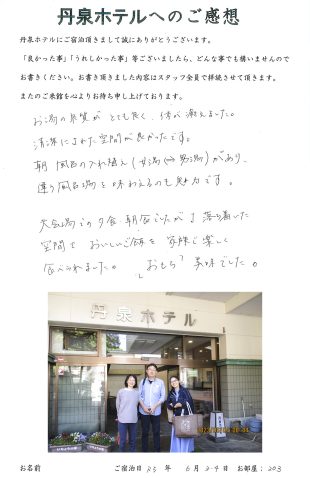 丹泉ホテルへのご感想
丹泉ホテルにご宿泊頂きまして誠にありがとうございます。
「良かった事」「うれしかった事」等ございましたら、どんな事でも構いませんので
お書きください。お書き頂きました内容はスタッフ全員で拝読させて頂きます。
またのご来館を心よりお待ち申し上げております。
お湯の泉質がとても良く、体が癒えました。
清潔にされた空間が良かったです。
朝 風呂の入れ替え(女湯⇔男湯)があり、
違う風呂場を味わえるのも魅力です。
大広間での夕食、朝食でしたが、落ち着いた
空間で おいしいご飯を 家族で楽しく
食べられました。「おもち」美味でした。
丹泉ホテル
お名前 ご宿泊日 R5 年 6 月 24 日 お部屋: 203